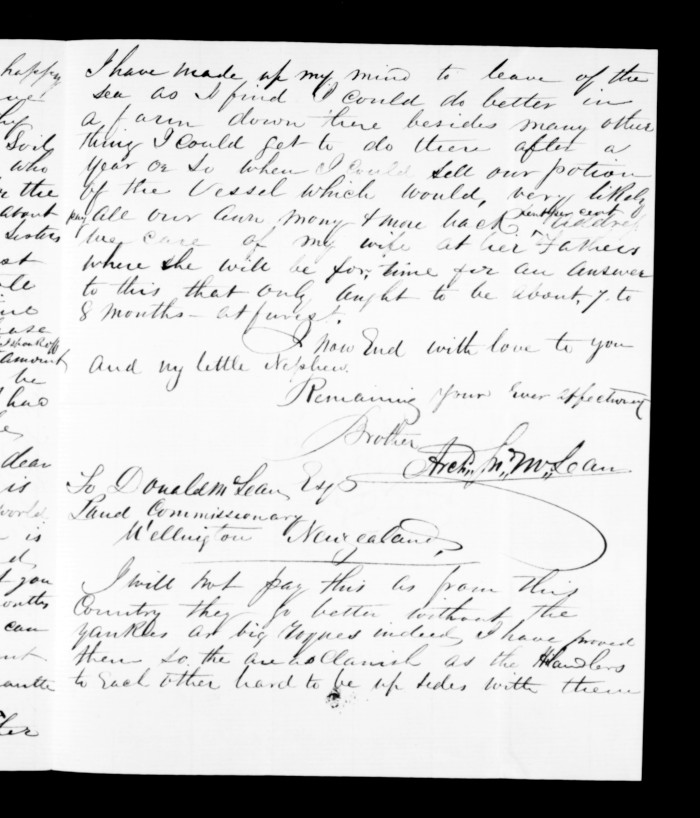 happy
who
the
about
Sisters
amount
be
I had
dear
is
world
is
you
months
can
I have made up my mind to leave of the
sea as I find I could do better in
a farm down there besides many other
thing I could get to do there after a
year or so when I could sell our potion
of the Vessel which would, very likely
pay all our own mony & more back addres
me care of my wife at her Fathers
where she will be for, time for an answer
to this that only aught to be about, 7 to
8 months – at furist.
I now End with love to you
And my little Nephew.
Remaining your Ever affectuony
Brother
Archd. Jn. McLean
To Donald McLean Esqr
Land Commissionary
Wellington Newzealand,
I will not pay this as from this
Country they go better without the
yankees ar big Rogues indeed, I have proved
them so. the are as Clanish as the Hlanders
to Each other hard to be up sides with them